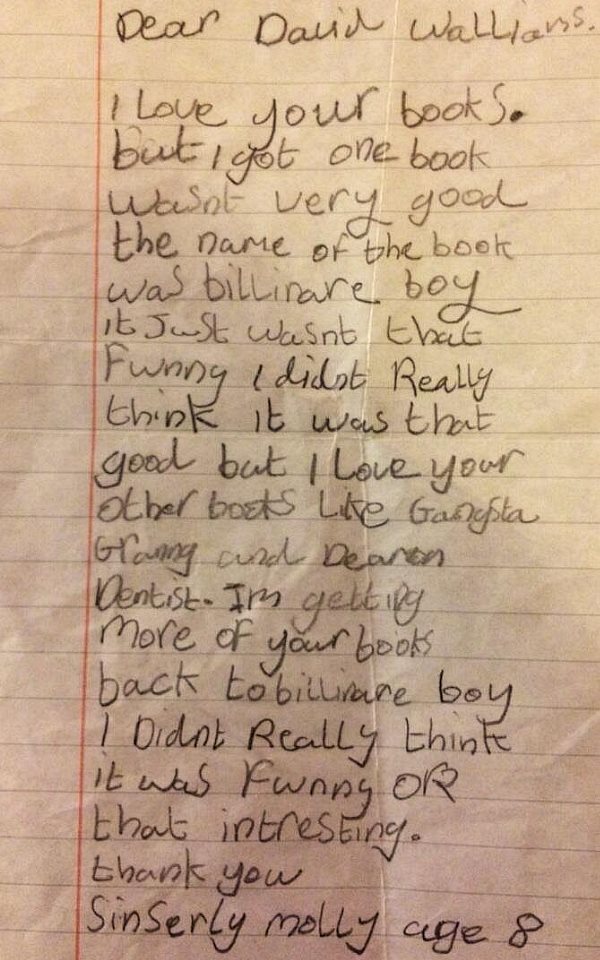 Dear David Walliams.
I Love your books.
but I got one book
wasnt very good
the name of the book
was billinare boy
it Just wasnt that
Funny I didnt Really
think it was that
good but I Love your
other books Like Gangsta
Granny and Deamon
Dentist. Im getting
more of your books
back to billinare boy
I Didnt Really think
it was Funny OR
that intresting.
thank you
Sinserly molly age 8